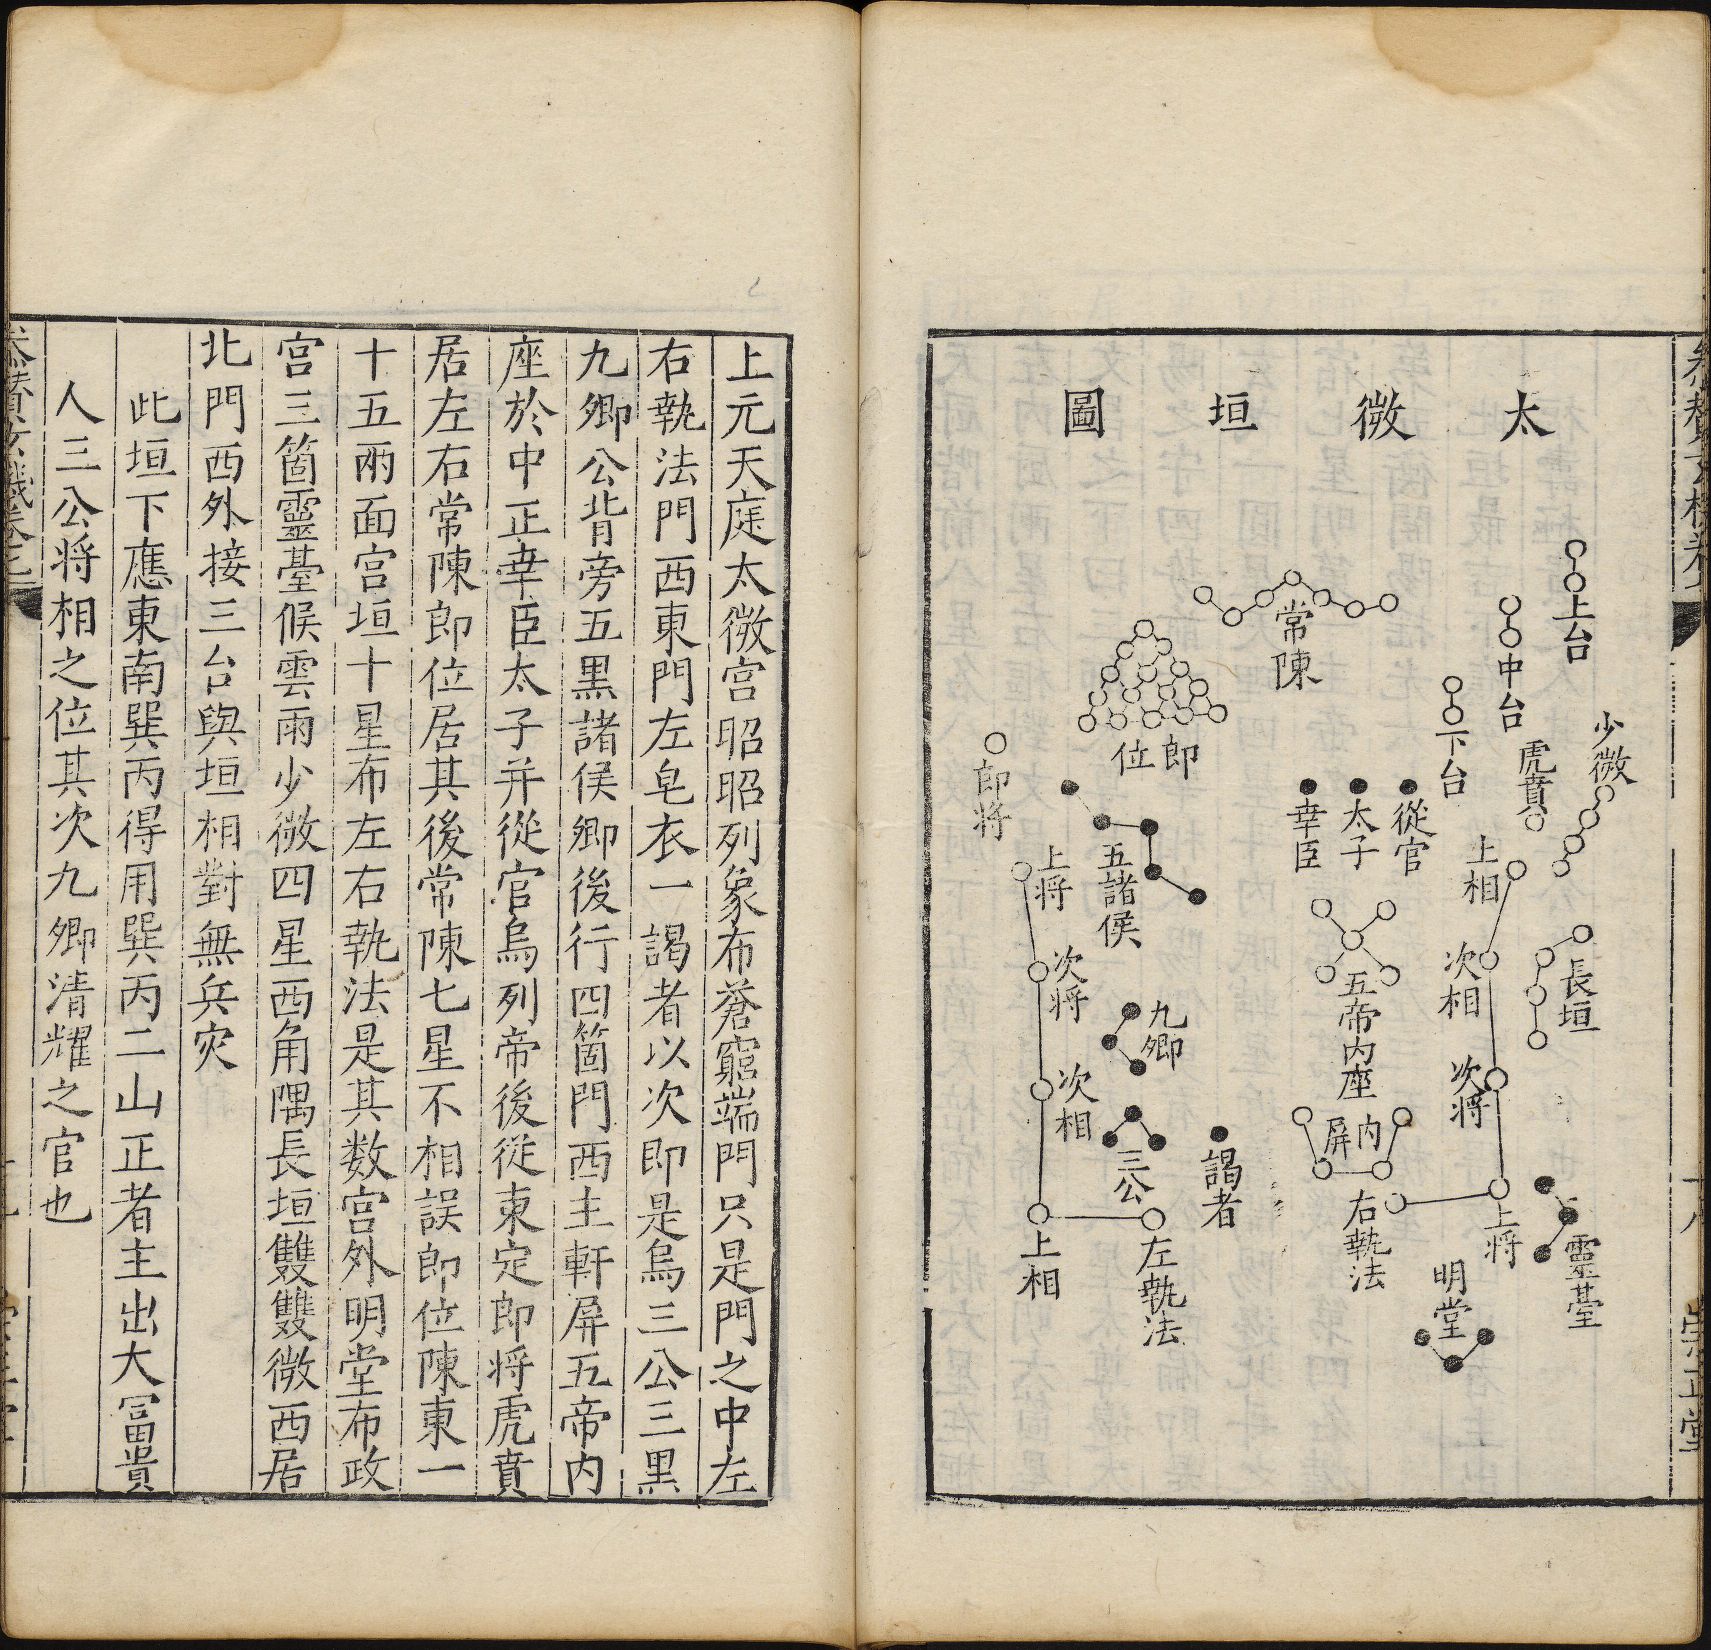 太微垣圖
上台
中台
下台
少微
虎賁
常陳
郎位
郎將
從官
太子
幸臣
上相
次相
次將
上將
長垣
五帝內座
內屏
右執法
靈臺
明堂
五諸侯
上將
次將
次相
上相
九卿
三公
謁者
左執法
上元天庭太微宫昭昭列象布蒼窮端門只是門之中左
右執法門西東門左皂衣一謁者以次即是烏三公三黑
九卿公背旁五黑諸侯卿後行四箇門西主軒屏五帝内
座於中正幸臣太子并從官烏列帝後從東定郎將虎賁
居左右常陳郎位居其後常陳七星不相誤郎位陳東一
十五兩面宫垣十星布左右執法是其数宫外明堂布政
宫三箇靈臺候雲雨少微四星西角隅長垣雙雙微西居
北門西外接三台與垣相對無兵灾
此垣下應東南巽丙得用巽丙二山正者主出大冨貴
人三公將相之位其次九卿清耀之官也